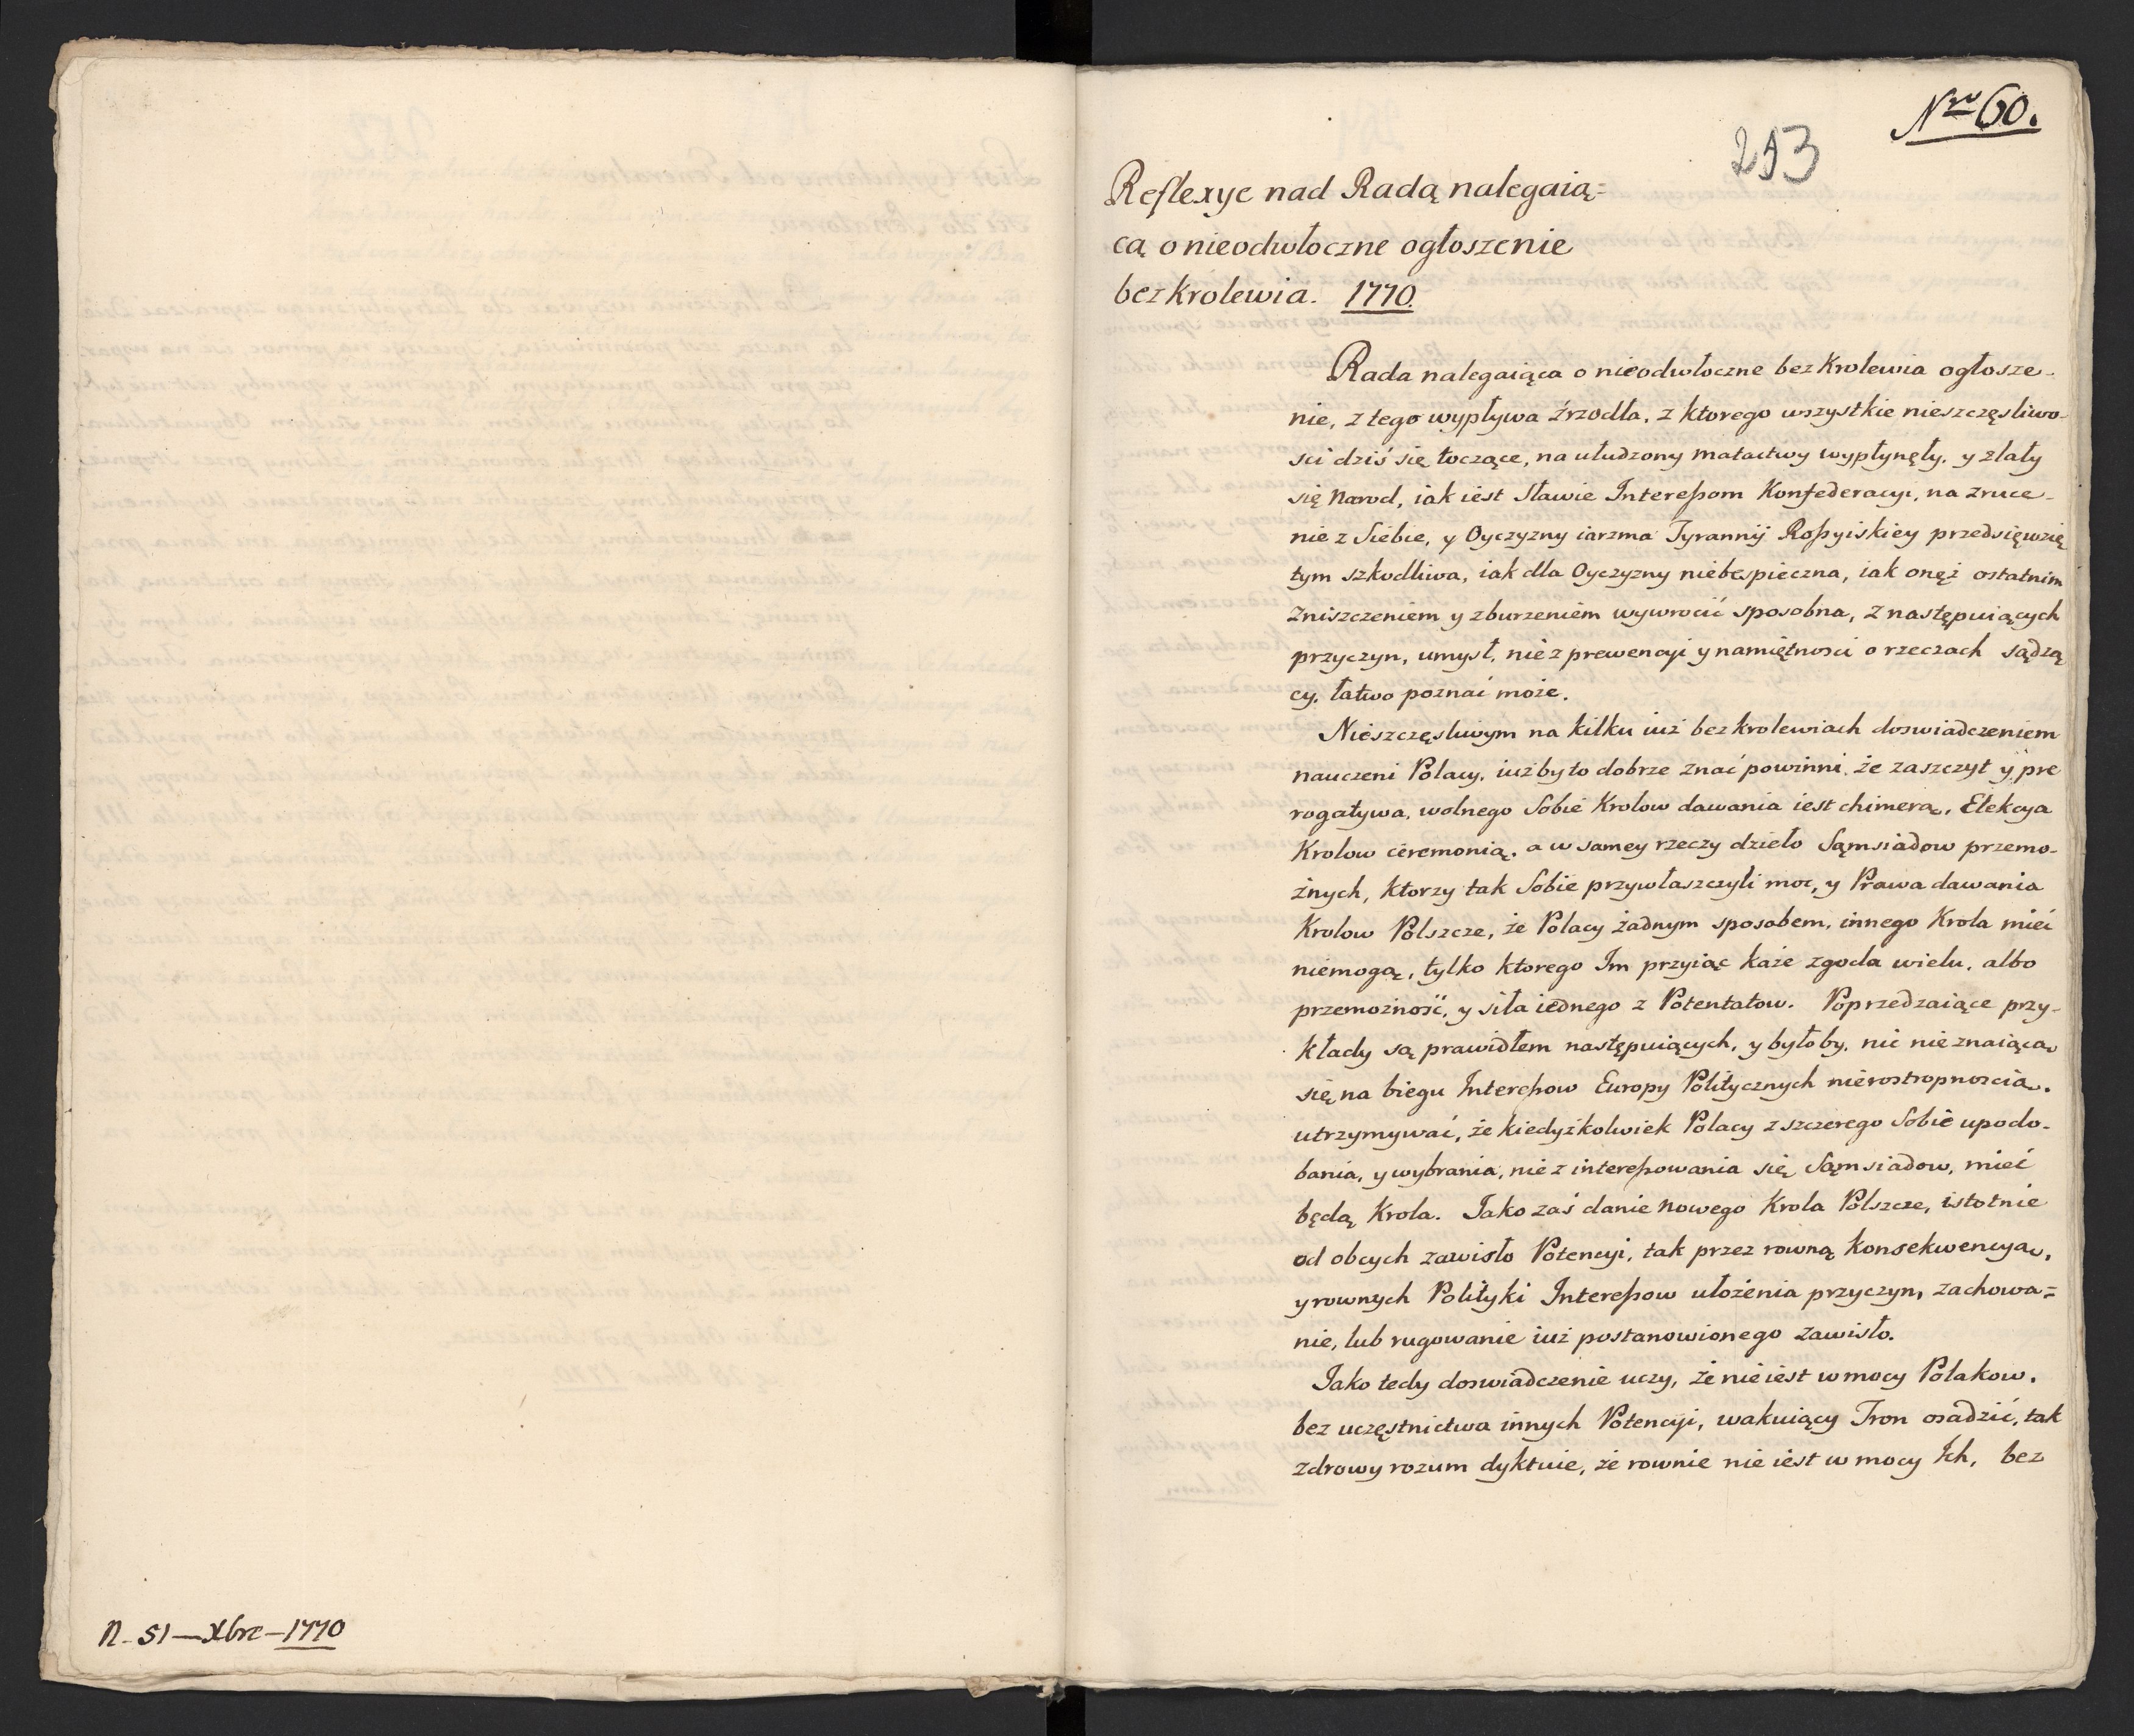 n. 51 — Xbre — 1770
Nro 60.
253
Reflexye nad Radą nalegaią=
cą o nieodwłoczne ogłoszenie
bezkrolewia. 1770.
Rada nalegaiąca o nieodwłoczne bezkrolewia ogłosze-
nie, z tego wypływa źrzodła, z ktorego wszystkie nieszczęsliwo-
sci dziś się toczące, na ułudzony matactwy wypłynęły, y zlały
się Narod, iak iest Sławie Interessom Konfederacyi, na zruce-
nie z Siebie, y Oyczyzny iarzma Tyrannij Rossyiskiey przedsięwzię
tym szkodliwa, iak dla Oyczyzny niebespieczna, iak onęż ostatnim
Zniszczeniem y zburzeniem wywrocić sposobna, z następuiących
przyczyn, umysł, nie z prewencyi y namiętnosci o rzeczach sądzą
cy, łatwo poznać może.
Nieszczęsliwym na kilku iuż bezkrolewiach doswiadczeniem
nauczeni Polacy, iużby to dobrze znać powinni, że zaszczyt y pre
rogatywa, wolnego Sobie Krolow dawania iest chimerą, Elekcya
Krolow ceremonią, a w samey rzeczy dzieło Sąmsiadow przemo-
żnych, ktorzy tak Sobie przywłaszczyli moc, y Prawa dawania
Krolow Polszcze, że Polacy żadnym sposobem, innego Krola mieć
niemogą, tylko ktorego Im przyiąc każe zgoda wielu, albo
przemożność, y siła iednego z Potentatow. Poprzedzaiące przy-
kłady są prawidłem następuiących, y byłoby, nic nie znaiącą
się na biegu Interessow Europy Politycznych nierostropnoscią,
utrzymywać, że kiedyżkolwiek Polacy z szczerego Sobie upodo-
bania, y wybrania, nie z interessowania się Sąmsiadow, mieć
będą Krola. Jako zaś danie nowego Krola Polszcze, istotnie
od obcych zawisło Potencyi, tak przez rowną konsekwencyą,
y rownych Polityki Interessow ułożenia przyczyn, zachowa=
nie, lub rugowanie iuż postanowionego zawisło.
Jako tedy doswiadczenie uczy, że nie iest w mocy Polakow,
bez uczęstnictwa innych Potencyi, wakuiący Tron osadzić, tak
zdrowy rozum dyktuie, że rownie nie iest w mocy Ich, bez